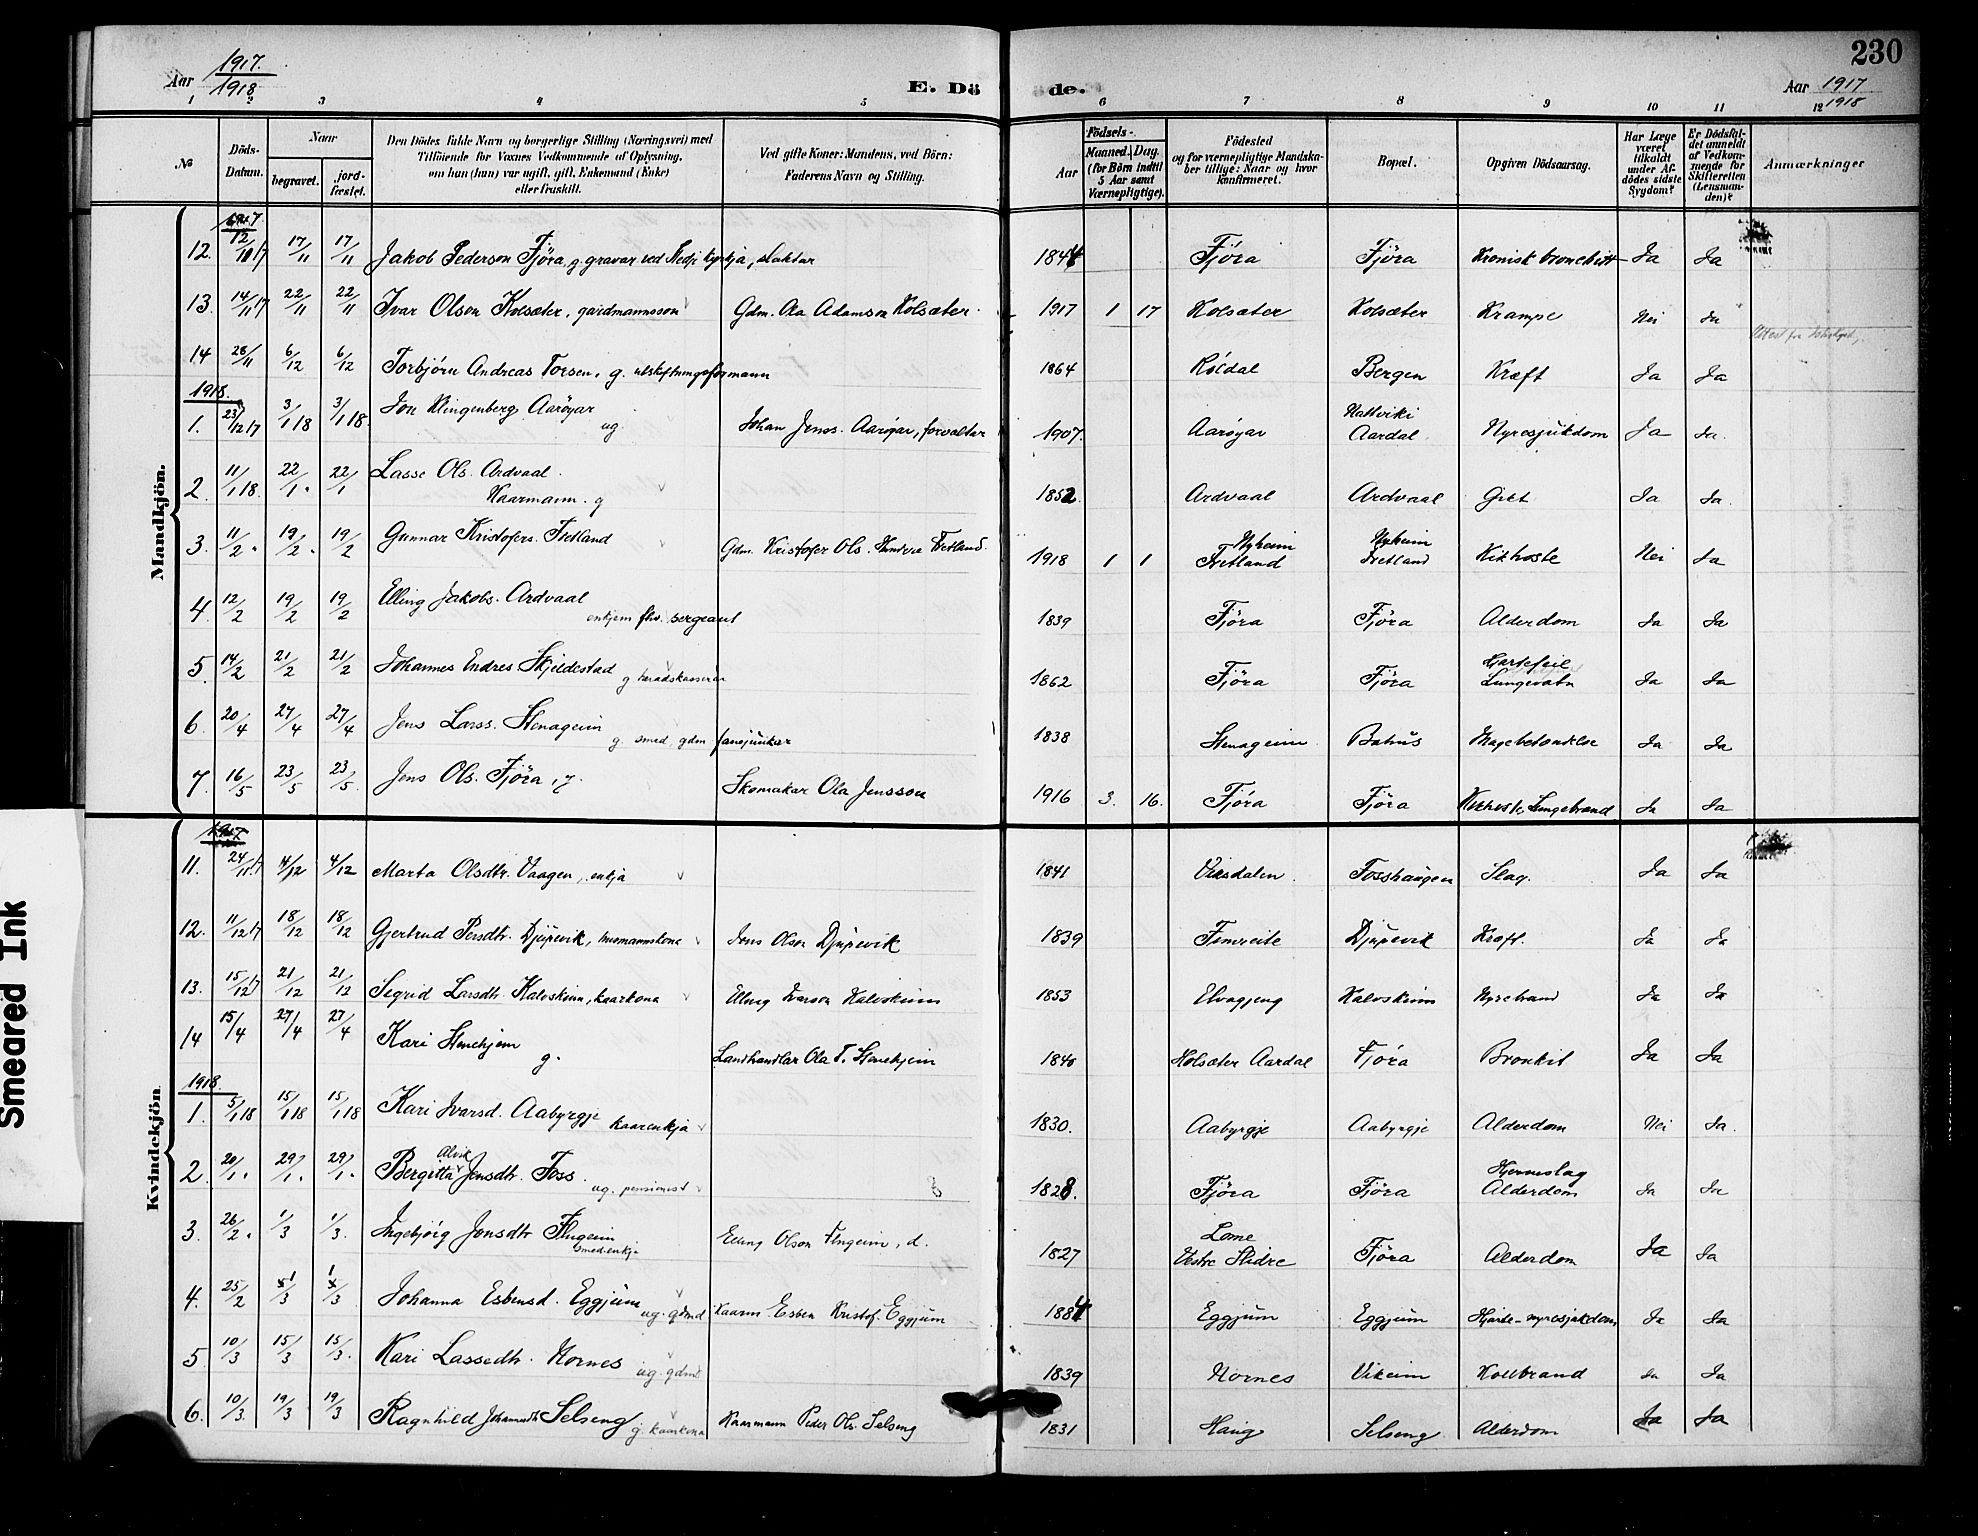 230
Aar 1917. 1918
E. Döde.
Aar 1917 1918
1 2 3 4 5 6 7 8 9 10 11 12
No
Döds-Datum.
Naar begravet. jordfæstet.
Den Dödes fulde Navn og borgerlige Stilling (Næringsvei) med Tilföiende for Voxnes Vedkommende af Oplysning, om han (hun) var ugift, gift, Enkemand (Enke) eller fraskilt.
Ved gifte Koner: Mandens, ved Börn: Faderens Navn og Stilling.
Födsels-
Aar
Maaned. Dag. (for Börn indtil 5 Aar samt Værnepligtige).
Födested og for værnepligtige Mandskaber tillige: Naar og hvor konfirmeret.
Bopæl.
Opgiven Dödsaarsag.
Har Læge været tilkaldt under Afdödes sidste Sygdom?
Er Dödsfaldet anmeldt af Vedkommende for Skifteretten (Lensmanden)?
Anmærkninger
Mandkjön.
1917.
12. 12/10 17 17/11 17/11 Jakob Pederson Fjöra, g. gravar ved Stedje kyrkja, slaktar 1844 Fjöra Fjöra Kronisk bronchitt Ja Ja
13. 14/11 17 22/11 22/11 Ivar Olson Kolsæter, gardmannsson Gdm. Ola Adamson Kolsæter. 1917 1 17 Kolsæter Kolsæter Krampe Nei Ja
14 28/11 6/12 6/12 Torbjörn Andreas Torsen, g. utskiftningsformann 1864 Röldal Bergen Kræft Ja Ja
1918.
1. 23/12 17 3/1 18 3/1 18. Jon Klingenberg Aaröyar ug. Johan Jenss. Aaröyar, forvaltar 1907. Aaröyar Nattviki Aardal Nyresjukdom Ja Ja.
2. 11/1 18. 22/1. 22/1 Lasse Ols. Ardvaal. Kaarmann. g 1852. Ardvaal Ardvaal Gikt Ja Ja.
3. 11/2. 19/2. 19/2 Gunnar Kristofers. Fretland Gdm. Kristofer Ols. Fretland. 1918 1 1 Nyheim Fretland Nyheim Fretland Kikhoste Nei Ja
4 12/2 19/2 19/2 Elling Jakobs. Ardvaal enkjem fhv. sergeant 1839 Fjöra Fjöra Alderdom Ja Ja
5. 14/2 21/2 21/2 Johannes Endres. Skjeldestad g heradskasserar 1862 Fjöra Fjöra Hjartefeil Lungevatn Ja Ja
6. 20/4 27/4 27/4 Jens Larss. Stenageim g. smed, gdm fanejunker 1838 Stenageim Bahús Magebetendelse Ja Ja
7. 16/5 23/5 23/5. Jens Ols. Fjöra, Skomakar Ola Jensson 1916 3. 16. Fjöra Fjöra Kikhoste Lungebrand Ja Ja
Kvindekjön
1917
11. 24/11 17 4/12 4/12 Marta Olsdtr. Vaagen, enkja 1841 Viksdalen. Fosshaugen Slag. Ja Ja
12. 11/12 17 18/12 18/12 Gjertrud Persdtr. Djupevik, husmannskone Jens Olson Djupevik 1839 Fimreite Djupevik Kræft. Ja Ja
13. 15/12 17 21/12 21/12 Sigrid Larsdtr. Kalvskinn, kaarkona Elling Ivarson Kalvskinn 1853 Elvagjeng Kalvskinn Nyrebrand Ja Ja
14 15/4 27/4 27/4 Kari Stenehjem g. Landhandlar Ola T. Stenehjem 1840 Holsæter Aardal Fjöra Bronkit Ja Ja
1918.
1. 5/1 18 15/1 18 15/1 18 Kari Ivarsd. Aabyrgje kaarenkja 1830. Aabyrgje Aabyrgje Alderdom Nei Ja.
2. 20/1. 29/1. 29/1. Bergitta Alvik Jensdtr. Foss. ug. pensionist 1828. Fjöra Fjöra Hjerneslag Alderdom Ja Ja
3. 26/2. 1/3 1/3. Ingebjörg Jonsdtr Flugeim smed.enkja Elling Olson Flugeim, d. 1827 Lome Vestre Slidre Fjöra Alderdom Ja Ja
4. 25/2 1/3 1/3 Johanna Esbensd. Eggjum ug. gdmd Kaarm Esben Kristof. Eggjum 1884 Eggjum Eggjum Hjarte-nyresjukdom Ja Ja
5. 10/3 15/3 15/3. Kari Lassedtr. Nornes ug. gdmd 1839 Nornes Vikeim Kollbrand Ja Ja
6. 10/3. 19/3 19/3 Ragnhild Johannesdtr Selseng g. kaarkona Kaarmann Peder Ols. Selseng 1831 Haug Selseng Alderdom Ja Ja
Smeared Ink